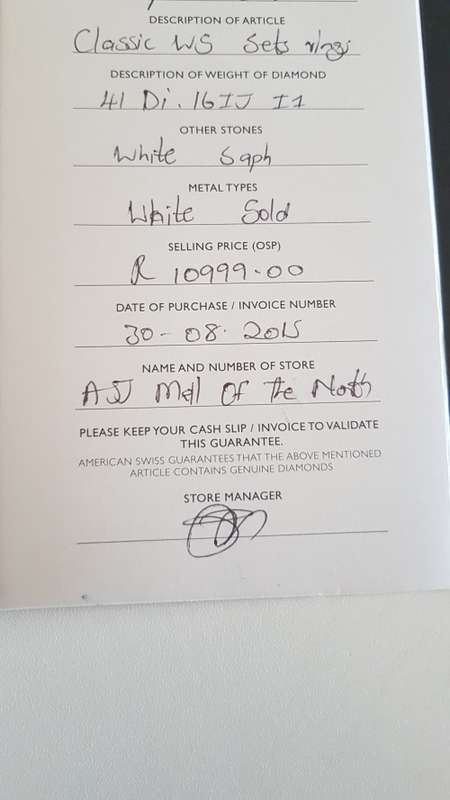 DESCRIPTION OF ARTICLE
Classic WS Sets
DESCRIPTION OF WEIGHT OF DIAMOND
41 Di. 16 IJ I1
OTHER STONES
White Saph
METAL TYPES
White Gold
SELLING PRICE (OSP)
R 10999-00
DATE OF PURCHASE / INVOICE NUMBER
30-08-2015
NAME AND NUMBER OF STORE
Mall Of the North
PLEASE KEEP YOUR CASH SLIP / INVOICE TO VALIDATE
THIS GUARANTEE.
AMERICAN SWISS GUARANTEES THAT THE ABOVE MENTIONED
ARTICLE CONTAINS GENUINE DIAMONDS
STORE MANAGER